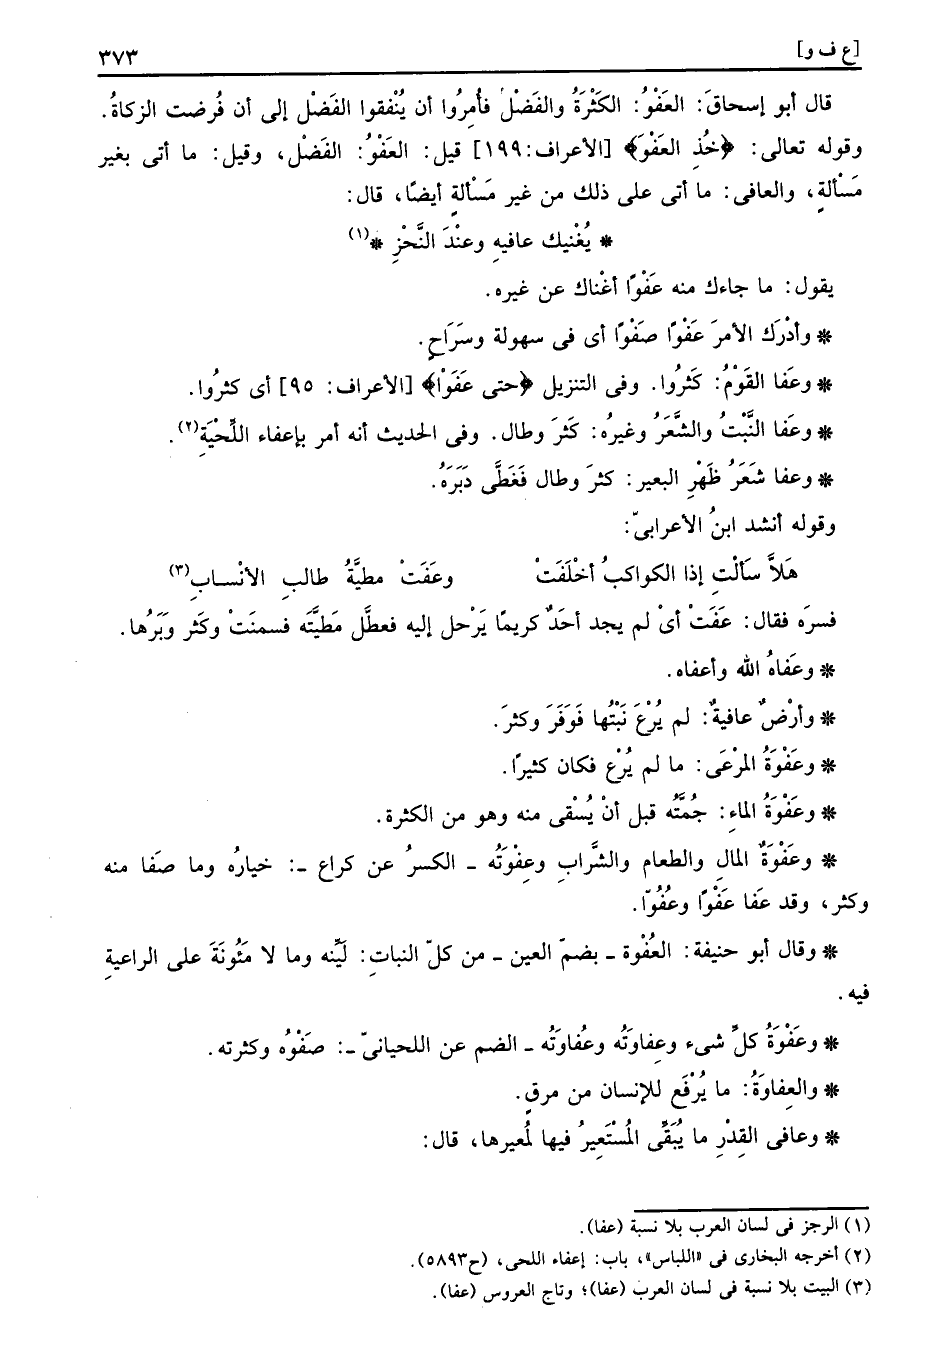 [ع ف و] ٣٧٣
قال أبو إسحاقَ: العَفْوُ: الكَثْرَةُ والفَضْلُ فأُمِرُوا أن يُنْفقوا الفَضْل إلى أن فُرضت الزكاةُ.
وقوله تعالى: ﴿خُذِ العَفْوَ﴾ [الأعراف:١٩٩] قيل: العَفْوُ: الفَضْل، وقيل: ما أتى بغير
مَسْألةٍ، والعافى: ما أتى على ذلك من غير مَسْألةٍ أيضًا، قال:
* يُغْنيك عافيهِ وعنْدَ النَّحْزِ *(١)
يقول: ما جاءك منه عَفْوًا أغْناك عن غيره.
* وأدْرَك الأمرَ عَفْوًا صفَوًْا أى فى سهولة وسَرَاحٍ.
* وعَفا القَوْمُ: كَثرُوا. وفى التنزيل ﴿حتى عَفَوْا﴾ [الأعراف: ٩٥] أى كثرُوا.
* وعَفا النَّبْتُ والشَّعَرُ وغيرُه: كَثرَ وطال. وفى الحديث أنه أمر بإعفاء اللِّحْيَةِ(٢).
* وعفا شَعَرُ ظَهْرِ البعير: كثرَ وطال فَغَطَّى دَبَرَهُ.
وقوله أنشد ابنُ الأعرابىّ:
هَلاَّ سَألْتِ إذا الكواكبُ أخْلَفَتْ وعَفَتْ مطيَّةُ طالبِ الأنْسابِ(٣)
فسرَه فقال: عَفَتْ أىْ لم يجد أحَدٌ كريمًا يَرْحل إليه فعطَّل مَطيَّتَه فسمنَتْ وكَثر وَبَرُها.
* وعَفاهُ الله وأعفاه.
* وأرْضٌ عافيةٌ: لم يُرْعَ نَبْتُها فَوَفَرَ وكثرَ.
* وعَفْوَةُ المرْعَى: ما لم يُرْع فكان كثيرًا.
* وعَفْوَةُ الماءِ: جُمَّتُه قبل أنْ يُسْقى منه وهو من الكثرة.
* وعَفْوَةُ المالِ والطعام والشَّرابِ وعِفْوَتُه ـ الكسرُ عن كراع ـ: خيارُه وما صَفا منه
وكثر، وقد عَفا عَفْوًا وعُفُوّا.
* وقال أبو حنيفة: العُفْوة ـ بضمّ العين ـ من كلّ النباتِ: لَيِّنه وما لا مَئُونَةَ على الراعيةِ
فيه.
* وعَفْوَةُ كلِّ شىء وعِفاوَتُه وعُفاوَتُه ـ الضم عن اللحيانىّ ـ: صفَوُْه وكثرته.
* والعِفاوَةُ: ما يُرْفَع للإنسان من مرقٍ.
* وعافى القِدْرِ ما يُبَقِّى المُسْتَعيرُ فيها لمُعيرها، قال:
(١) الرجز فى لسان العرب بلا نسبة (عفا).
(٢) أخرجه البخارى فى «اللباس»، باب: إعفاء اللحى، (ح٥٨٩٣).
(٣) البيت بلا نسبة فى لسان العرب (عفا)؛ وتاج العروس (عفا).